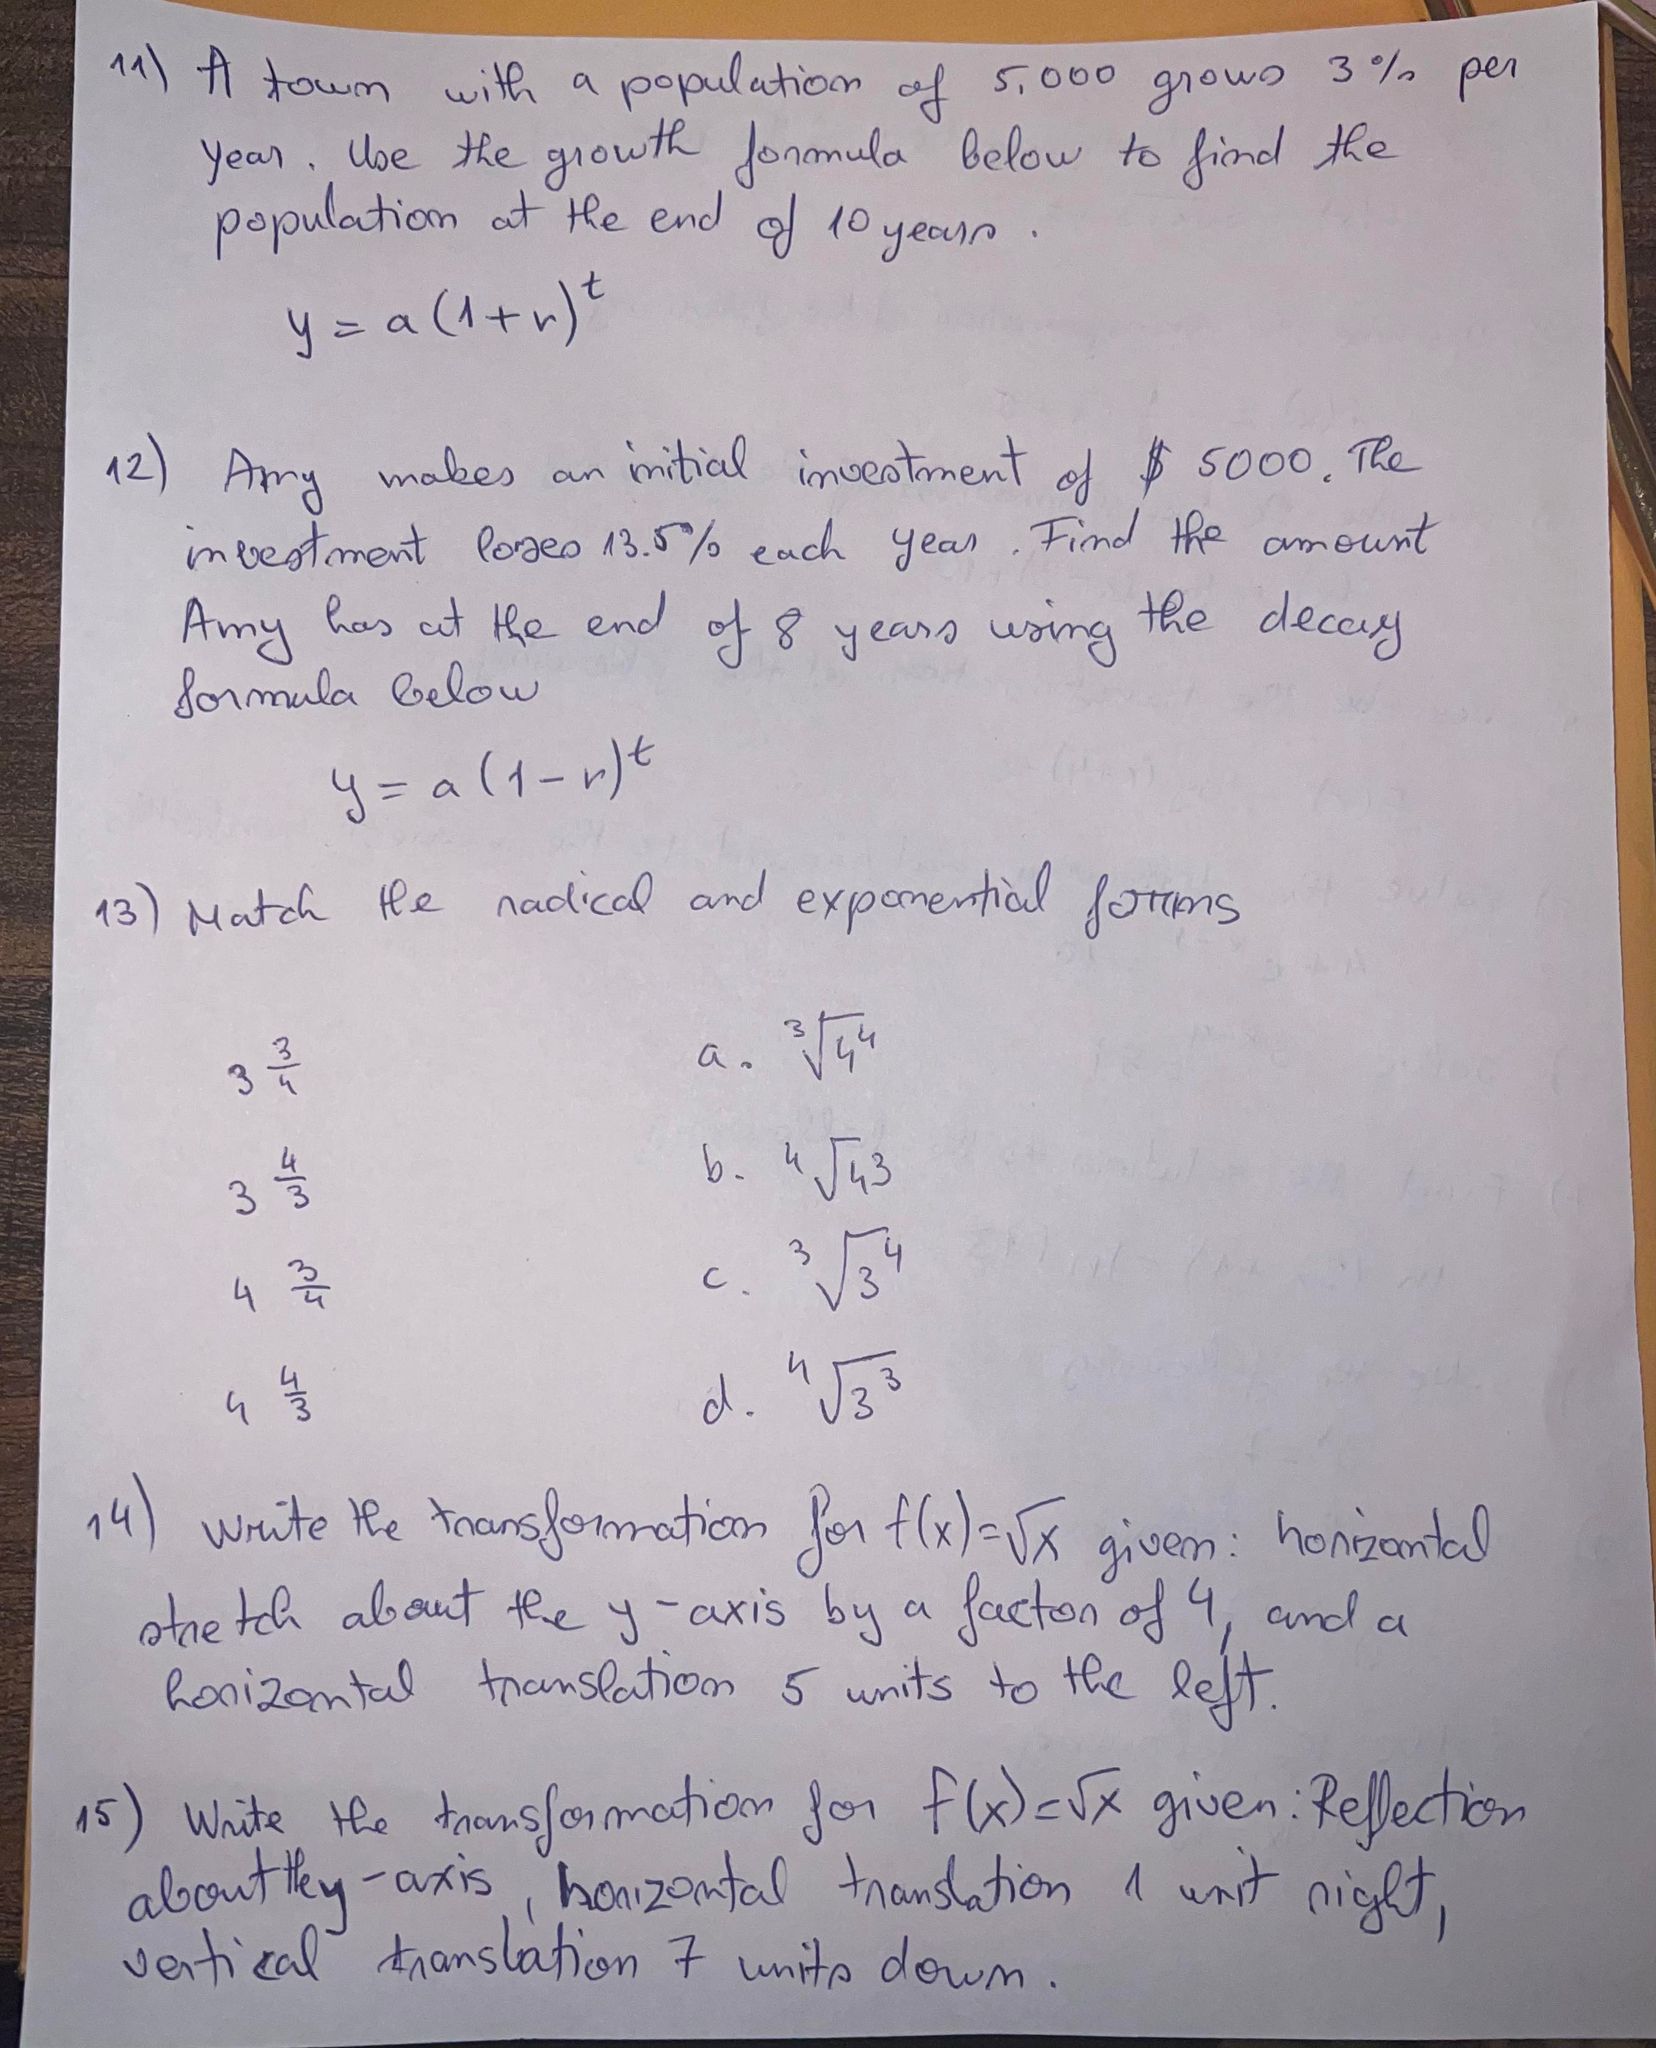 11) A town with a population of 5,000 grows 3% per
year. Use the growth formula below to find the
population at the end of 10 years.
y = a(1+r)^t
12) Amy makes an initial investment of $ 5000. The
investment loses 13.5% each year. Find the amount
Amy has at the end of 8 years using the decay
formula below
y = a(1-r)^t
13) Match the radical and exponential forms
3^(3/4) a. ³√4⁴
3^(4/3) b. ⁴√4³
4^(3/4) c. ³√3⁴
4^(4/3) d. ⁴√3³
14) Write the transformation for f(x)=√x given: horizontal
stretch about the y-axis by a factor of 4, and a
horizontal translation 5 units to the left.
15) Write the transformation for f(x)=√x given: Reflection
about the y-axis, horizontal translation 1 unit right,
vertical translation 7 units down.